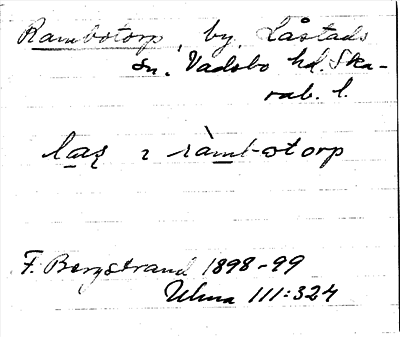 Rambotorp, by, Låstads
sn. Vadsbo hd. Ska-
rab. l.
ı ràmbotorp
F. Bergstrand 1898-99
Ulma 111:324